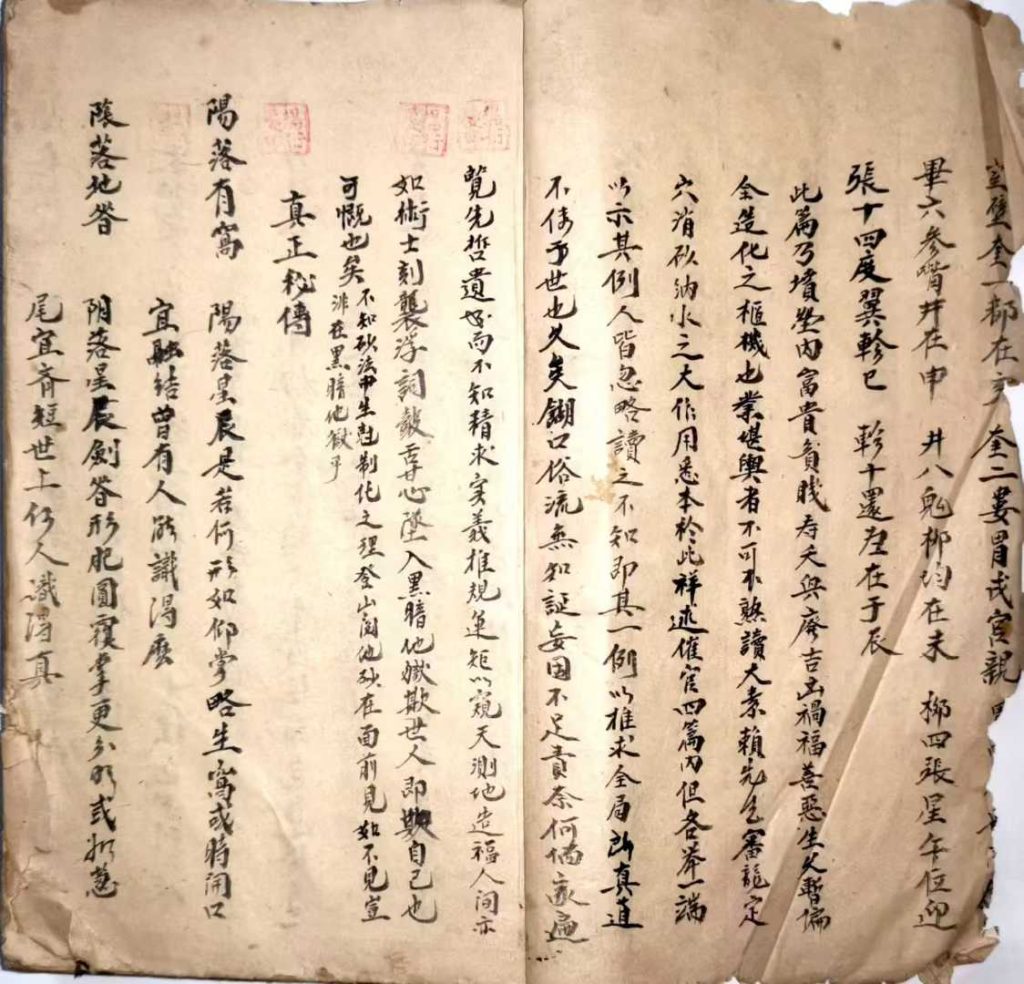 室壁奎一都在亥　奎二婁胃戌宮親
畢六參嘴井在申　井八鬼柳均在未　柳四張星午位迎
張十四度翼軫巳　軫十還在于辰
此篇乃墳塋內富貴貧賤寿夭與廢吉凶禍福善惡生父暫偏
全造化之樞機也業堪輿者不可不熟讀大素賴先生審龍定
穴消砂納水之大作用悉本於此祥述催官四篇內但各舉一端
以示其例人皆忽略讀之不知即其一例以推求全局所真道
不傳于世也久矣餬口俗流無知証妄固不足責奈何儒家遍
覽先哲遺 而不知精求实義推規運矩以窺天測地造福人间亦
如術士刻襲浮詞皷舌甘心墜入黑暗地嶽欺世人即欺自己也
可慨也矣 不知砂法中生尅制化之理登山阅地砂在面前見如不見豈
非在黑暗地獄乎
真正秘傳
陽落有窩　陽落星辰是若何形如仰掌略生窩或時開口
宜融結曾有人能識得麽
陰落地答　阴落星辰劍答形肥圓覆掌更分明或 葱
尾宜齐短世上何人識得真